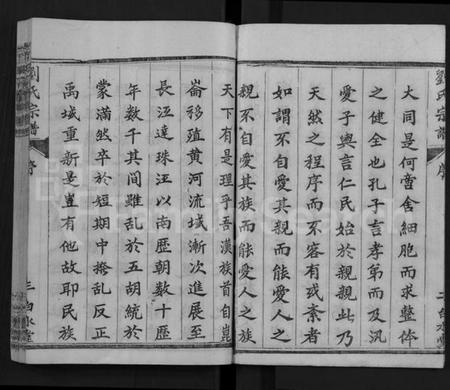 劉氏宗譜 序
大同是何啻舍細胞而求整体
之健全也孔子言孝弟而及汎
愛子輿言仁民始於親親此乃
天然之程序而不容有或紊者
如謂不自愛其親而能愛人之
親不自愛其族而能愛人之族
天下有是理乎吾漢族首自崑
崙移殖黄河流域漸次進展至
長江達珠江以南歷朝數十歷
年數千其間雖乱於五胡統於
蒙滿然卒於短期中撥乱反正
禹域重新是豈有他故耶民族
劉氏宗譜 序